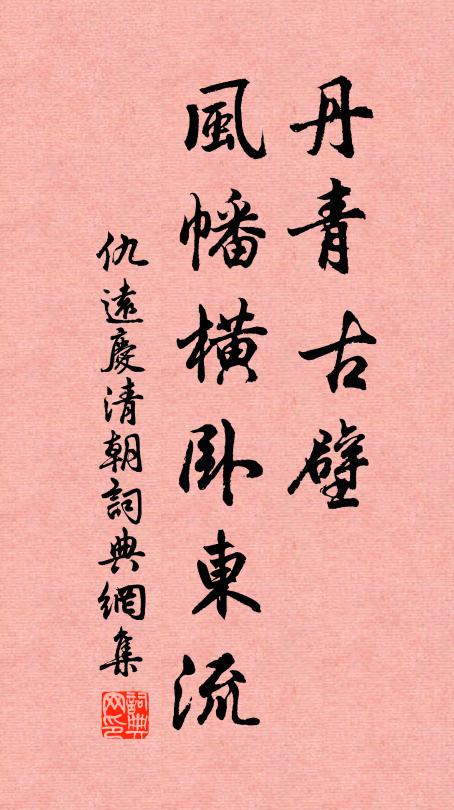 丹青古壁
風幡橫卧東流
仇遠慶清朝詞典網集
詞典网印